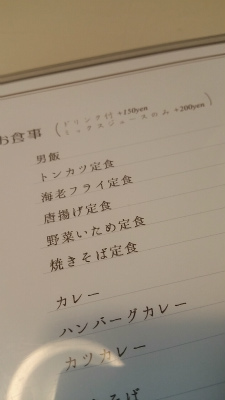 お食事 (ドリンク付 +150yen
ミックスジュースのみ +200yen)
男飯
トンカツ定食
海老フライ定食
唐揚げ定食
野菜いため定食
焼きそば定食
カレー
ハンバーグカレー
カツカレー
そば